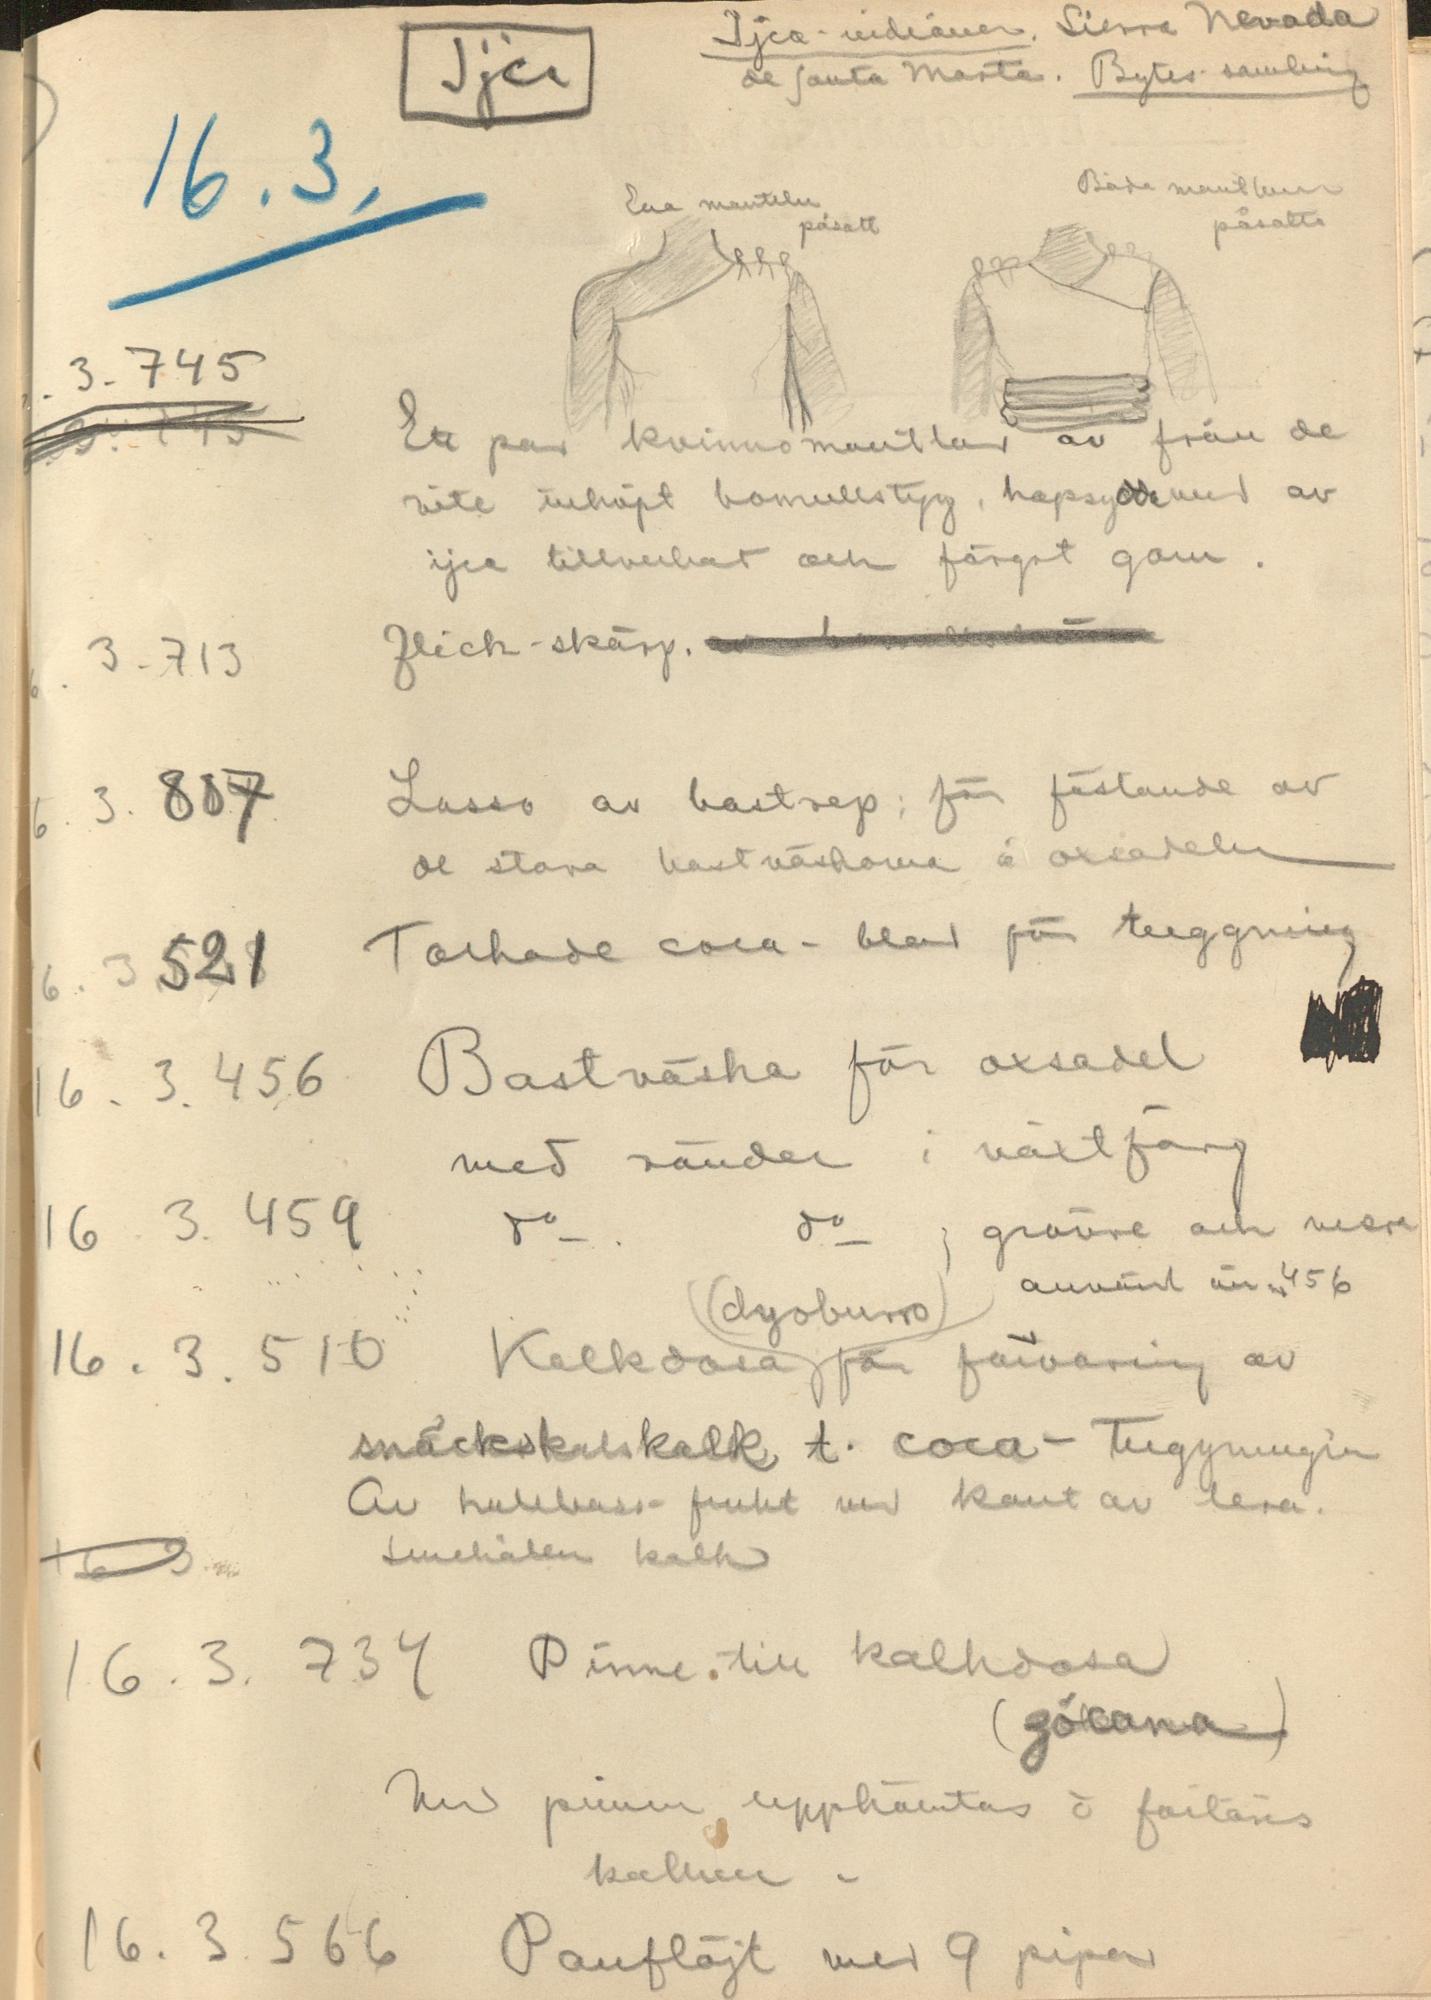 Ijca
Ijca-indianer. Sierra Nevada
de Santa Marta. Bytes-samling
16.3.
Ena manteln
påsatt
Båda mantlarna
påsatta
3.745
Ett par kvinnomantlar av från de
vite inköpt bomullstyg, hopsydda med av
ijca tillverkat och färgat garn.
3-713 Flick-skärp.
6. 3. 807 Lasso av bastrep; för fästande av
de stora bastväskorna å oxsadeln
6. 3 521 Torkade coca-blad för tuggning
16. 3. 456 Bastväska för oxsadel
med ränder i växtfärg
16 3. 459 do . do ; grövre och mera
använt än 456
(dyoburro)
16. 3. 510 Kalkdosa för förvaring av
snäckskalskalk t. coca-Tuggningen
Av kalebass-frukt med kant av lera.
16 3. Innehåller kalk
16. 3. 734 Pinne till kalkdosa
(gócana)
Med pinnen upphämtas o förtäres
kalken -
16. 3. 566 Panflöjt med 9 pipor